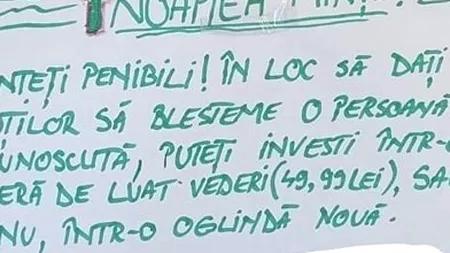 NOAPTEA MINȚII
NTEȚI PENIBILI! ÎN LOC SĂ DAȚI
OȚILOR SĂ BLESTEME O PERSOANĂ
UNOSCUTĂ, PUTEȚI INVESTI ÎNTR-O
ERĂ DE LUAT VEDERI (49,99 LEI), SA
NU, ÎNTR-O OGLINDĂ NOUĂ.